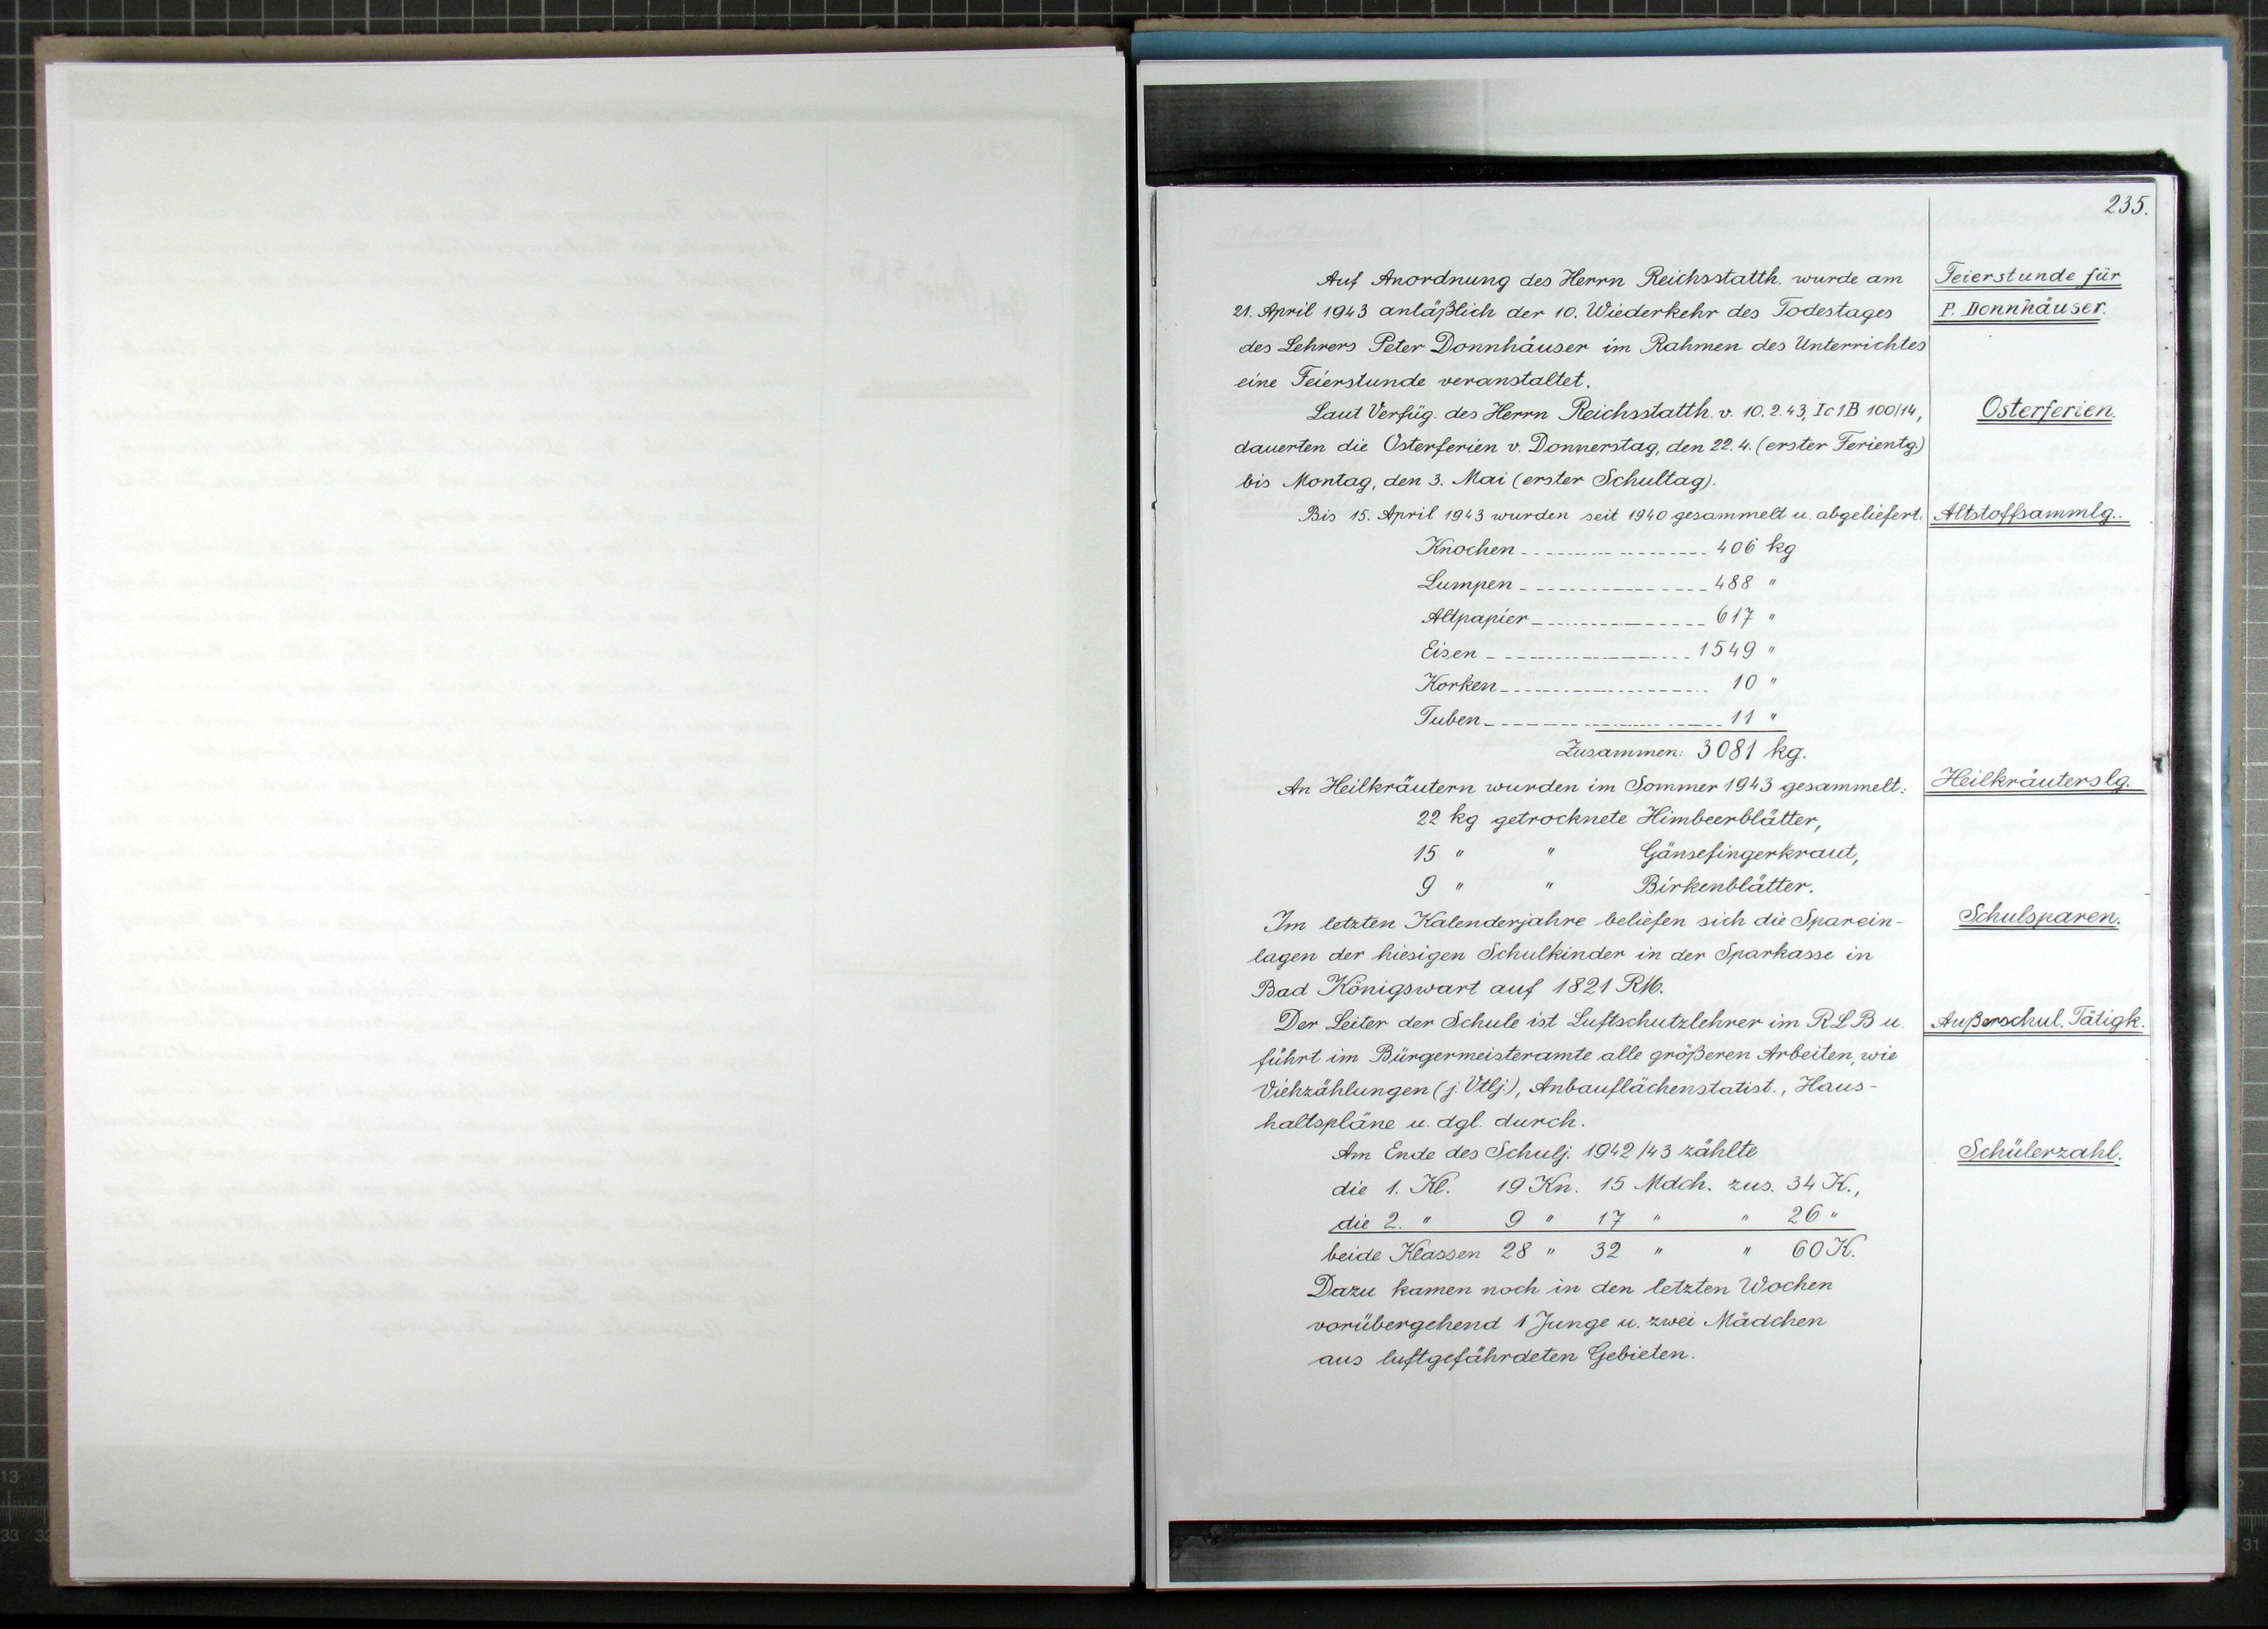 235.
Auf Anordnung des Herrn Reichsstatth. wurde am
Feierstunde für
21. April 1943 anläßlich der 10. Wiederkehr des Todestages
P. Donnhäuser.
des Lehrers Peter Donnhäuser im Rahmen des Unterrichtes
eine Feierstunde veranstaltet.
Laut Verfüg. des Herrn Reichsstatth. v. 10.2.43, Ic1B 100/14,
Osterferien.
dauerten die Osterferien v. Donnerstag, den 22.4. (erster Ferientg)
bis Montag, den 3. Mai (erster Schultag).
Bis 15. April 1943 wurden seit 1940 gesammelt u. abgeliefert:
Altstoffsammlg.
Knochen 406 kg
Lumpen 488 "
Altpapier 617 "
Eisen 1549 "
Korken 10 "
Tuben 11 "
Zusammen: 3081 kg.
An Heilkräutern wurden im Sommer 1943 gesammelt:
Heilkräuterslg.
22 kg getrocknete Himbeerblätter,
15 " " Gänsefingerkraut,
9 " " Birkenblätter.
Im letzten Kalenderjahre beliefen sich die Sparein-
Schulsparen.
lagen der hiesigen Schulkinder in der Sparkasse in
Bad Königswart auf 1821 RM.
Der Leiter der Schule ist Luftschutzlehrer im RLB u.
Außerschul. Tätigk.
führt im Bürgermeisteramte alle größeren Arbeiten, wie
Viehzählungen (j. Vtlj.), Anbauflächenstatist., Haus-
haltspläne u. dgl. durch.
Am Ende des Schulj. 1942/43 zählte
Schülerzahl.
die 1. Kl. 19 Kn. 15 Mdch. zus. 34 K.,
die 2. " 9 " 17 " " 26 "
beide Klassen 28 " 32 " " 60 K.
Dazu kamen noch in den letzten Wochen
vorübergehend 1 Junge u. zwei Mädchen
aus luftgefährdeten Gebieten.